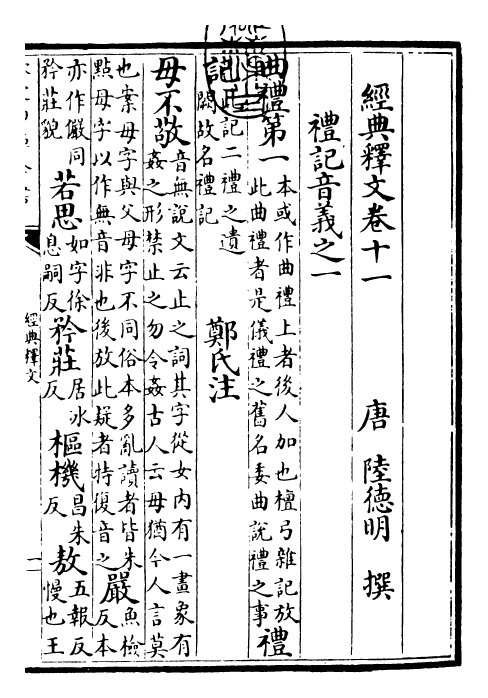 經典釋文卷十一
唐 陸德明 撰
禮記音義之一
曲禮第一本或作曲禮上者後人加也檀弓雜記放此曲禮者是儀禮之舊名委曲說禮之事禮
記此記二禮之遺闕故名禮記 鄭氏注
毋不敬音無說文云止之詞其字從女内有一畫象有姦之形禁止之勿令姦古人云毋猶今人言莫
也案毋字與父母字不同俗本多亂讀者皆朱點母字以作無音非也後放此疑者特復音之嚴魚檢反本
亦作儼同矜莊貌若思如字徐息嗣反矜莊居冰反樞機昌朱反敖五報反慢也王
經典釋文
一